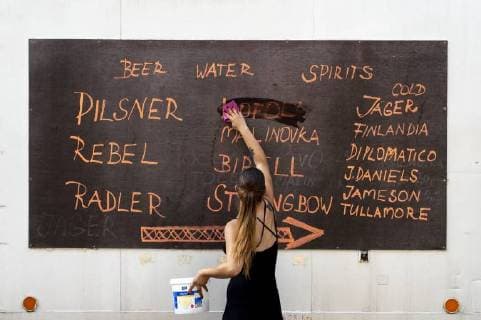 BEER WATER SPIRITS
PILSNER
REBEL
RADLER
MALINOVKA
BIRELL
STRONGBOW
COLD
JAGER
FINLANDIA
DIPLOMATICO
J.DANIELS
JAMESON
TULLAMORE